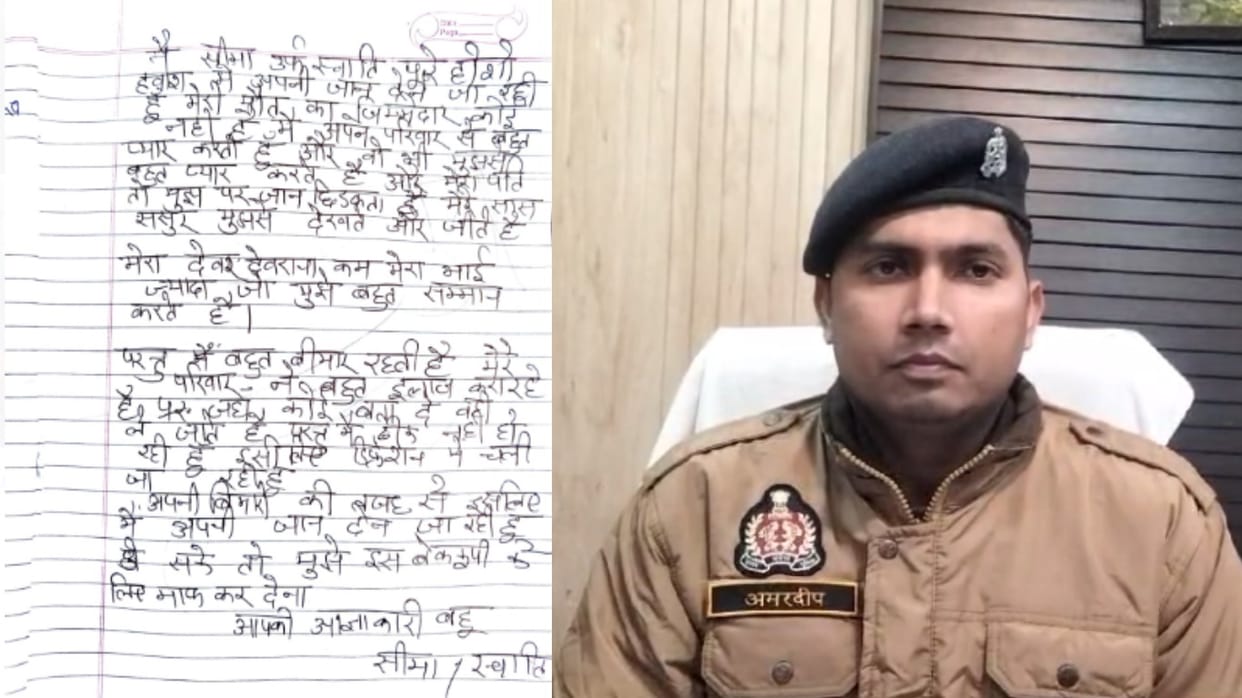 Date
Page
मै सीमा उर्फ स्वाति पूरे होशो
हवाश से अपनी जान देने जा रही
हूँ मेरी मौत का जिमेदार कोई
नही है मै अपने परिवार से बहुत
प्यार करती हूँ और वो भी मुझसे
बहुत प्यार करते है और मेरा पति
तो मुझ पर जान छिडकता है मेरे सास
ससुर मुझसे देखते और जीते है
मेरा देवर देवरानी कम मेरा भाई
ज्यादा जो मुझे बहुत सम्मान
करते है।
परतु मैं बहुत बीमार रहती है मेरे
परिवार ने बहुत इलाज करा रहे
है जिधे कोई बता दे वही
ले जाते है परतु मै ठीक नही हो
रही हूँ इसी लिए डिप्रेशन मे चली
जा रही हूँ
अपनी बिमारी की बजह से इसलिए
मै अपनी जान देने जा रही हूँ
हो सके तो मुझे इस बेकूफी के
लिए माफ कर देना
आपकी आज्ञाकारी बहू
सीमा / स्वाति
अमरदीप